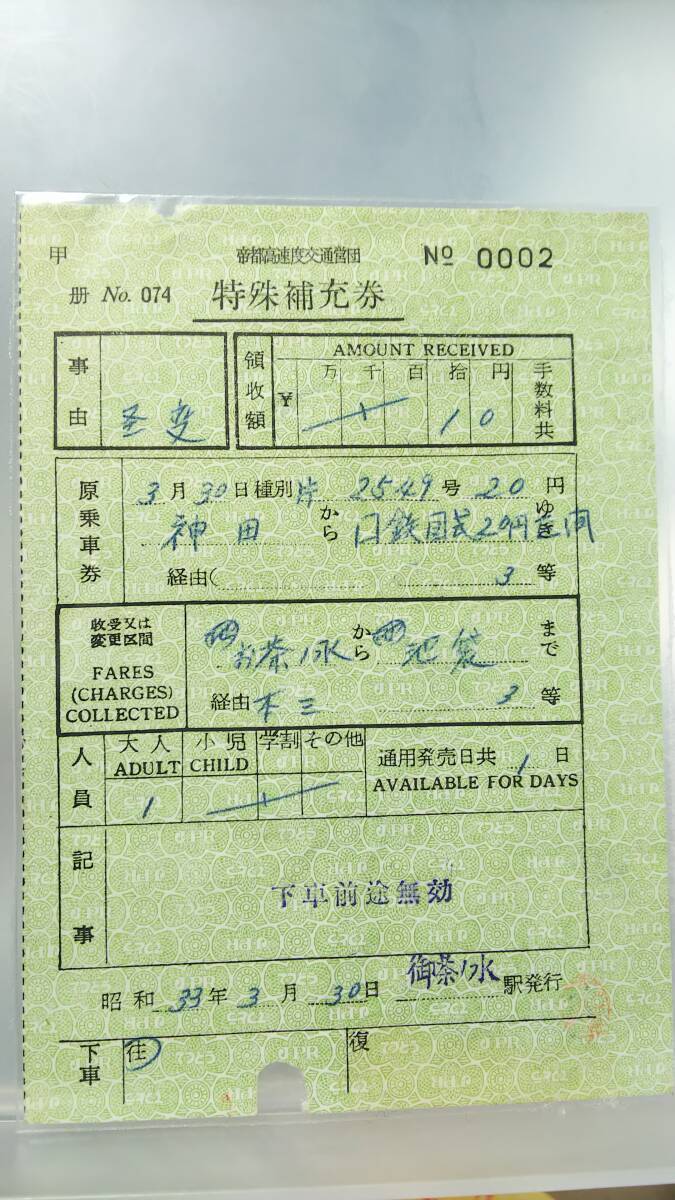 甲
帝都高速度交通営団
№ 0002
册 No. 074
特殊補充券
事由
区変
領収額
AMOUNT RECEIVED
¥ 万 千 百 拾 円
1 0
手数料共
原乗車券
3月30日種別 片 2549号 20円
神田 から 国鉄図式20円区間 ゆき
経由( 3等
收受又は変更区間
FARES (CHARGES) COLLECTED
地 お茶ノ水 から 地 池袋 まで
経由 本三 3等
人員
大人 小児 学割 その他
ADULT CHILD
1
通用発売日共 1 日
AVAILABLE FOR DAYS
記事
下車前途無効
昭和 33年 3月 30日 御茶ノ水 駅発行
下車
往
復